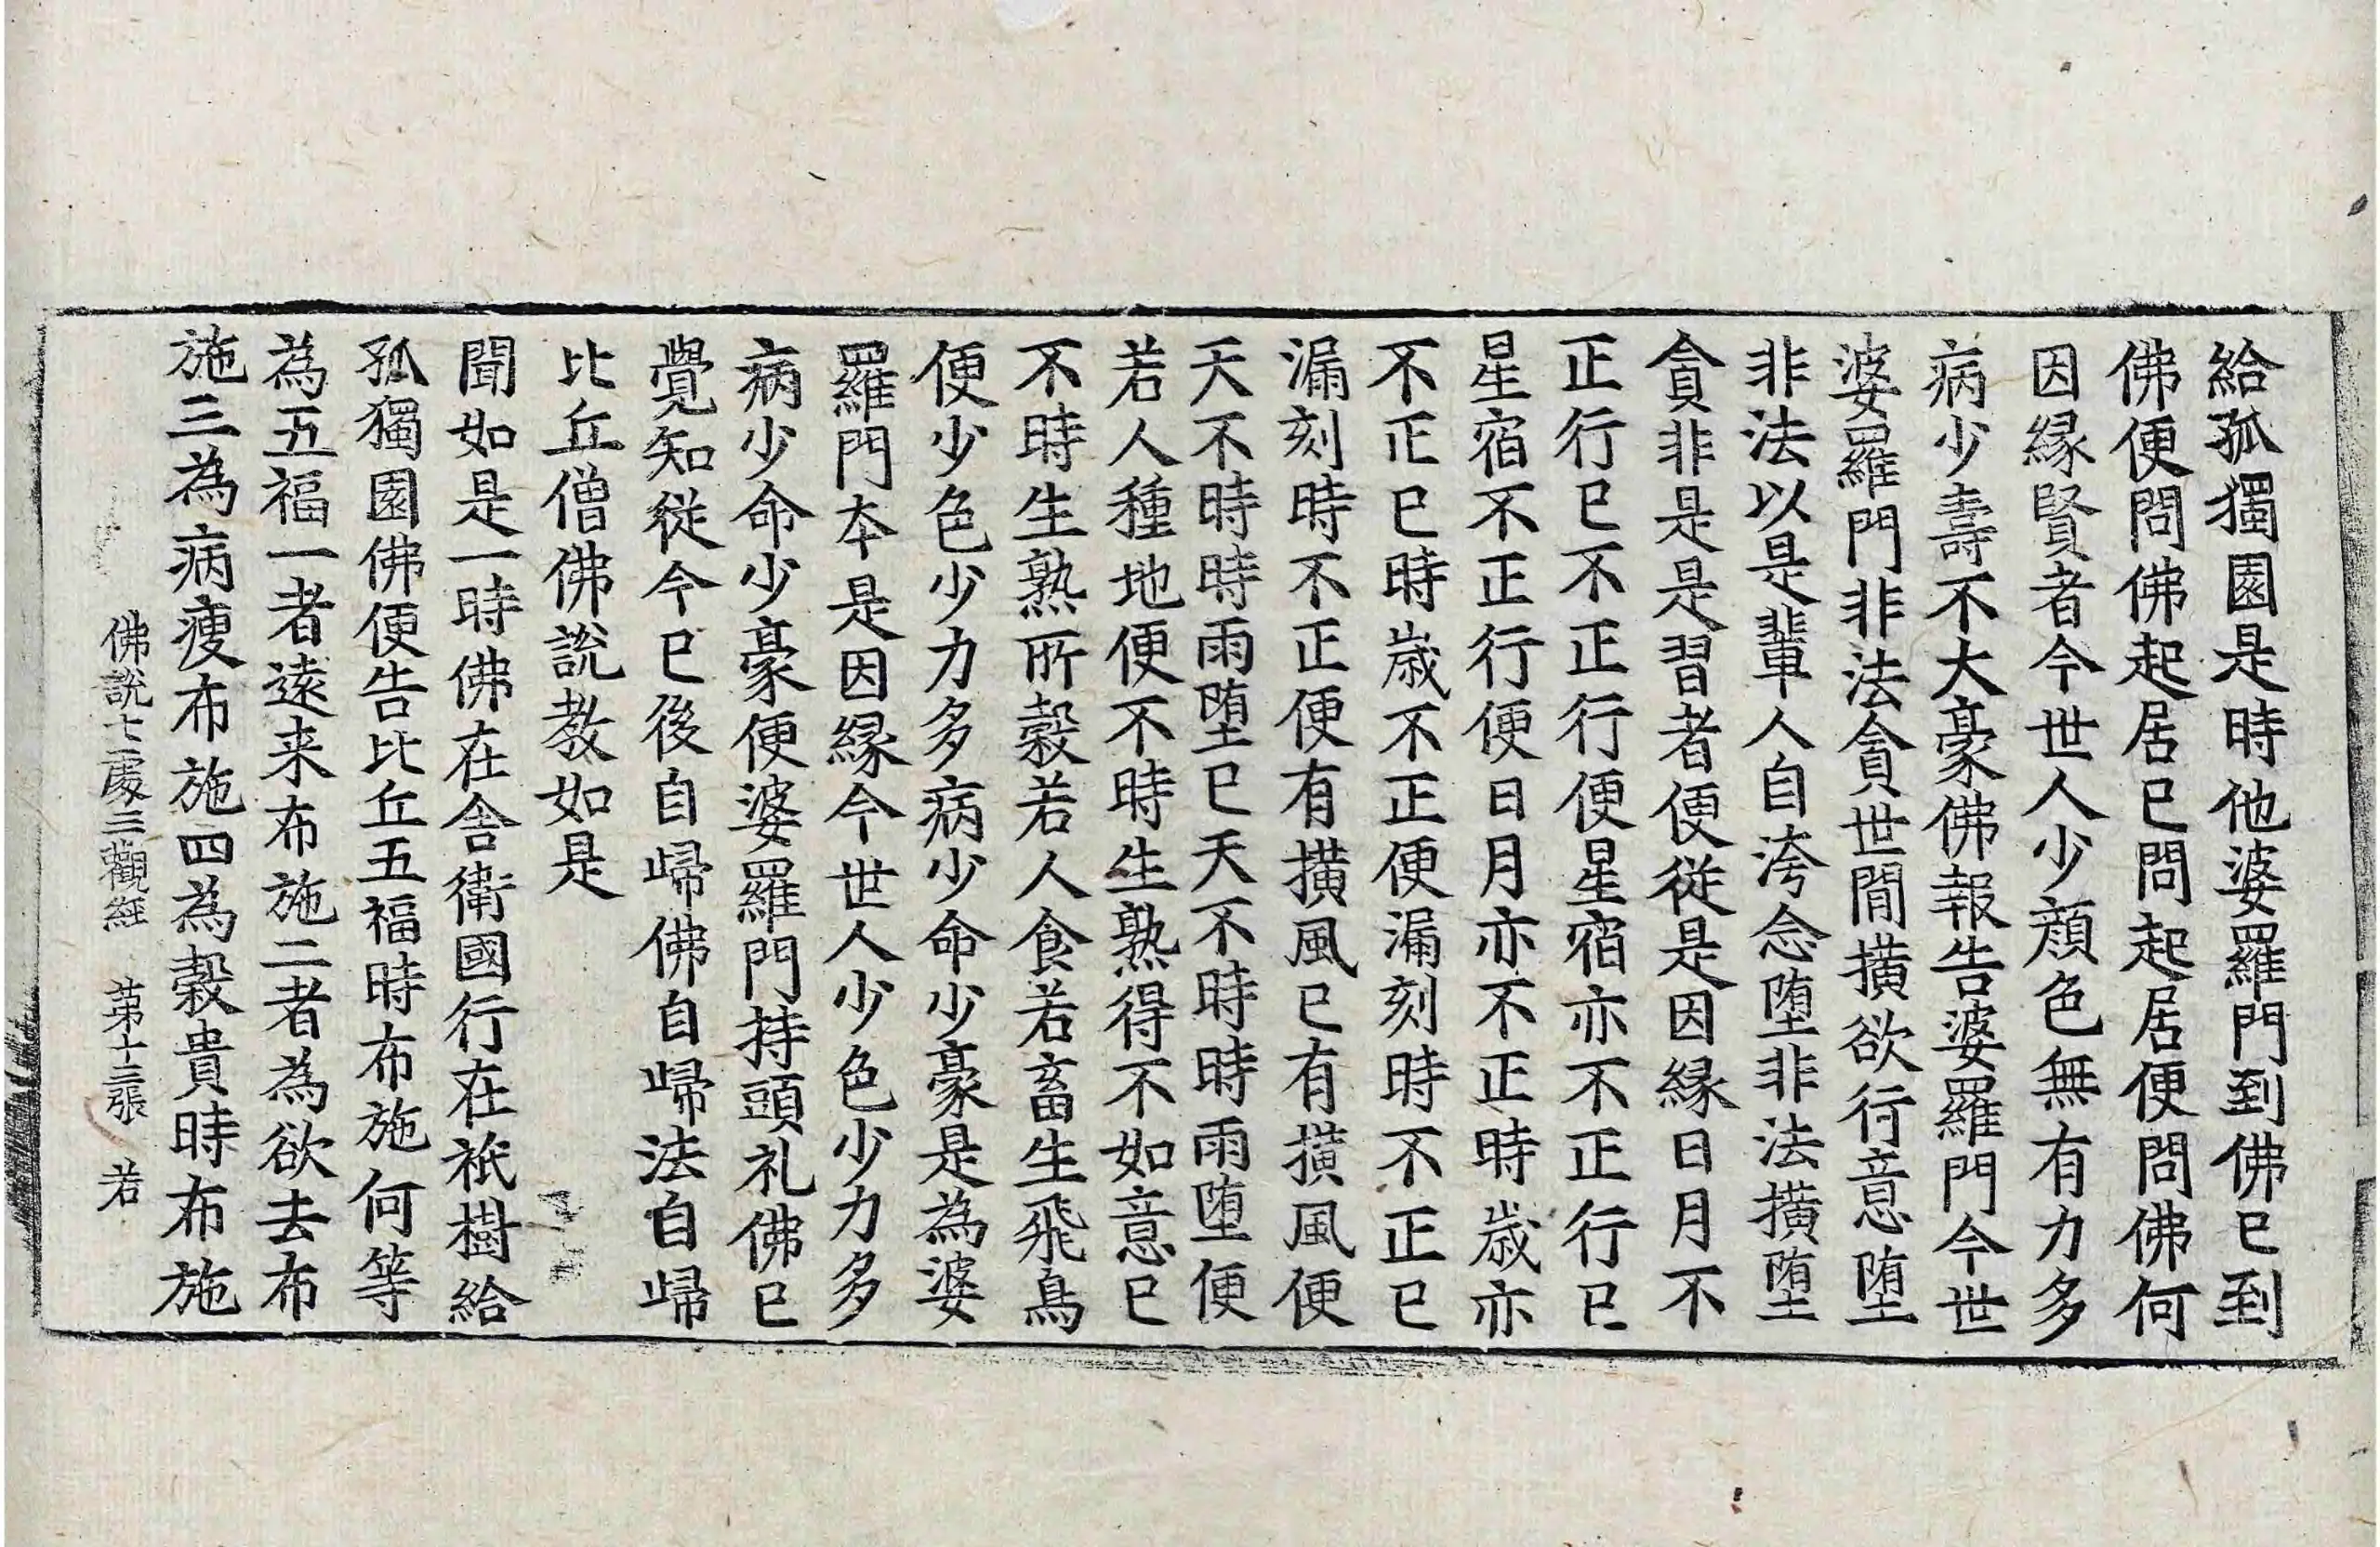 給孤獨園是時他婆羅門到佛已到
佛便問佛起居已問起居便問佛何
因緣賢者今世人少顏色無有力多
病少壽不大豪佛報告婆羅門今世
婆羅門非法貪世間撗欲行意墮
非法以是輩人自洿念墮非法撗墮
貪非是是習者便從是因緣日月不
正行已不正行便星宿亦不正行已
星宿不正行便日月亦不正時歲亦
不正已時歲不正便漏刻時不正已
漏刻時不正便有撗風已有撗風便
天不時時雨墮已天不時時雨墮便
若人種地便不時生熟得不如意已
不時生熟所穀若人食若畜生飛鳥
便少色少力多病少命少豪是為婆
羅門本是因緣今世人少色少力多
病少命少豪便婆羅門持頭礼佛已
覺知從今已後自歸佛自歸法自歸
比丘僧佛說教如是
聞如是一時佛在舍衛國行在祇樹給
孤獨園佛便告比丘五福時布施何等
為五福一者遠来布施二者為欲去布
施三為病瘦布施四為穀貴時布施
佛說七處三觀經 第十三張 若